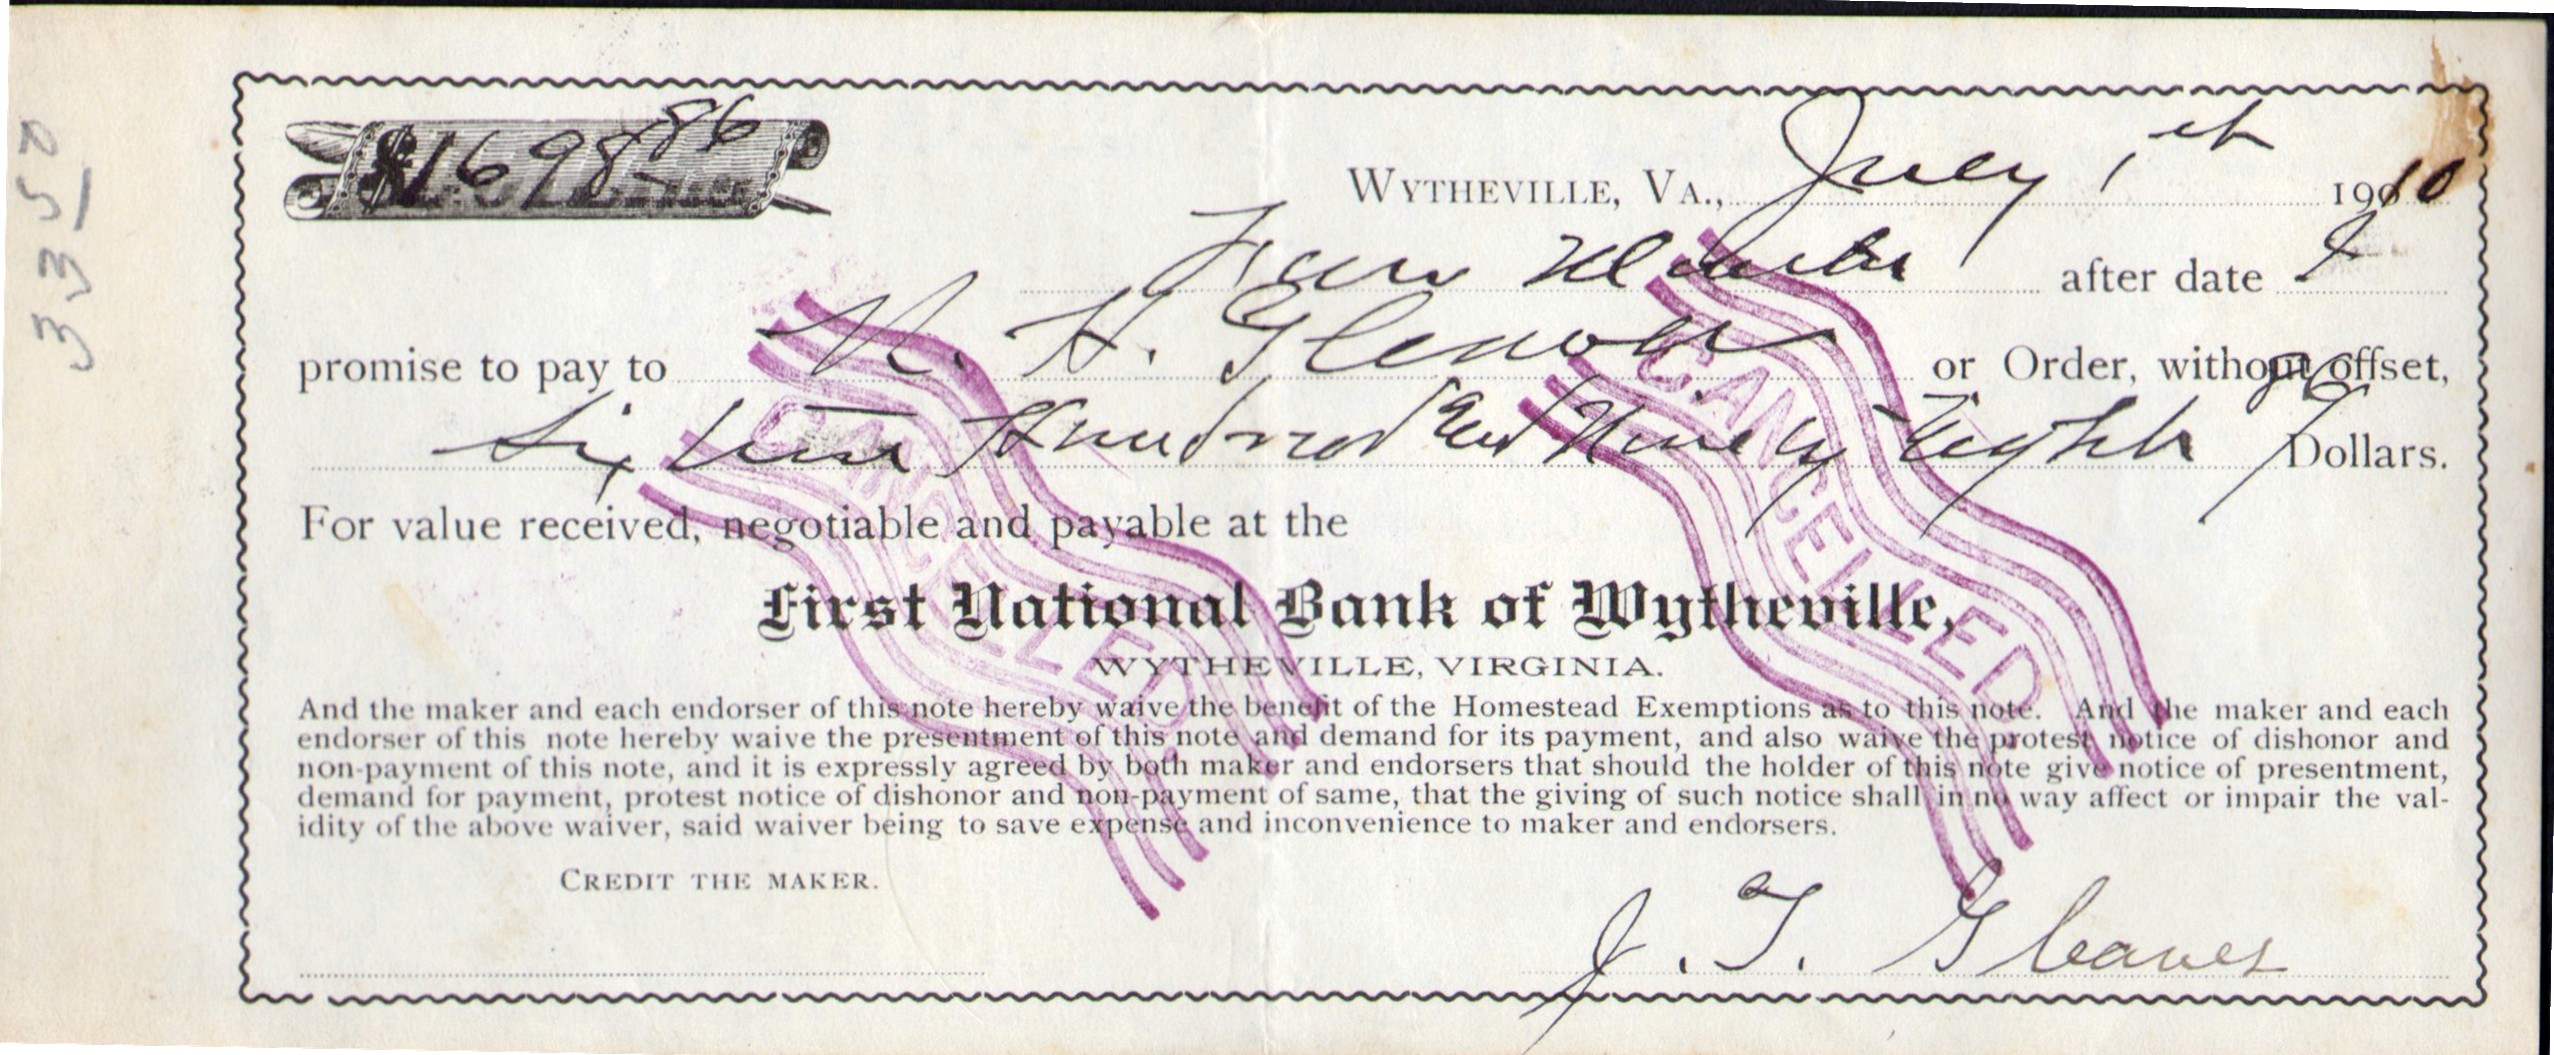 3350
$1698 86
WYTHEVILLE, VA., July 1st 1910
Four Months after date I
promise to pay to N. H. Gleaves or Order, without offset,
Sixteen Hundred and Ninety Eight 86/ Dollars.
For value received, negotiable and payable at the
First National Bank of Wytheville,
WYTHEVILLE, VIRGINIA.
And the maker and each endorser of this note hereby waive the benefit of the Homestead Exemptions as to this note. And the maker and each
endorser of this note hereby waive the presentment of this note and demand for its payment, and also waive the protest, notice of dishonor and
non-payment of this note, and it is expressly agreed by both maker and endorsers that should the holder of this note give notice of presentment,
demand for payment, protest notice of dishonor and non-payment of same, that the giving of such notice shall in no way affect or impair the val-
idity of the above waiver, said waiver being to save expense and inconvenience to maker and endorsers.
CREDIT THE MAKER.
J. T. Gleaves
CANCELLED
CANCELLED